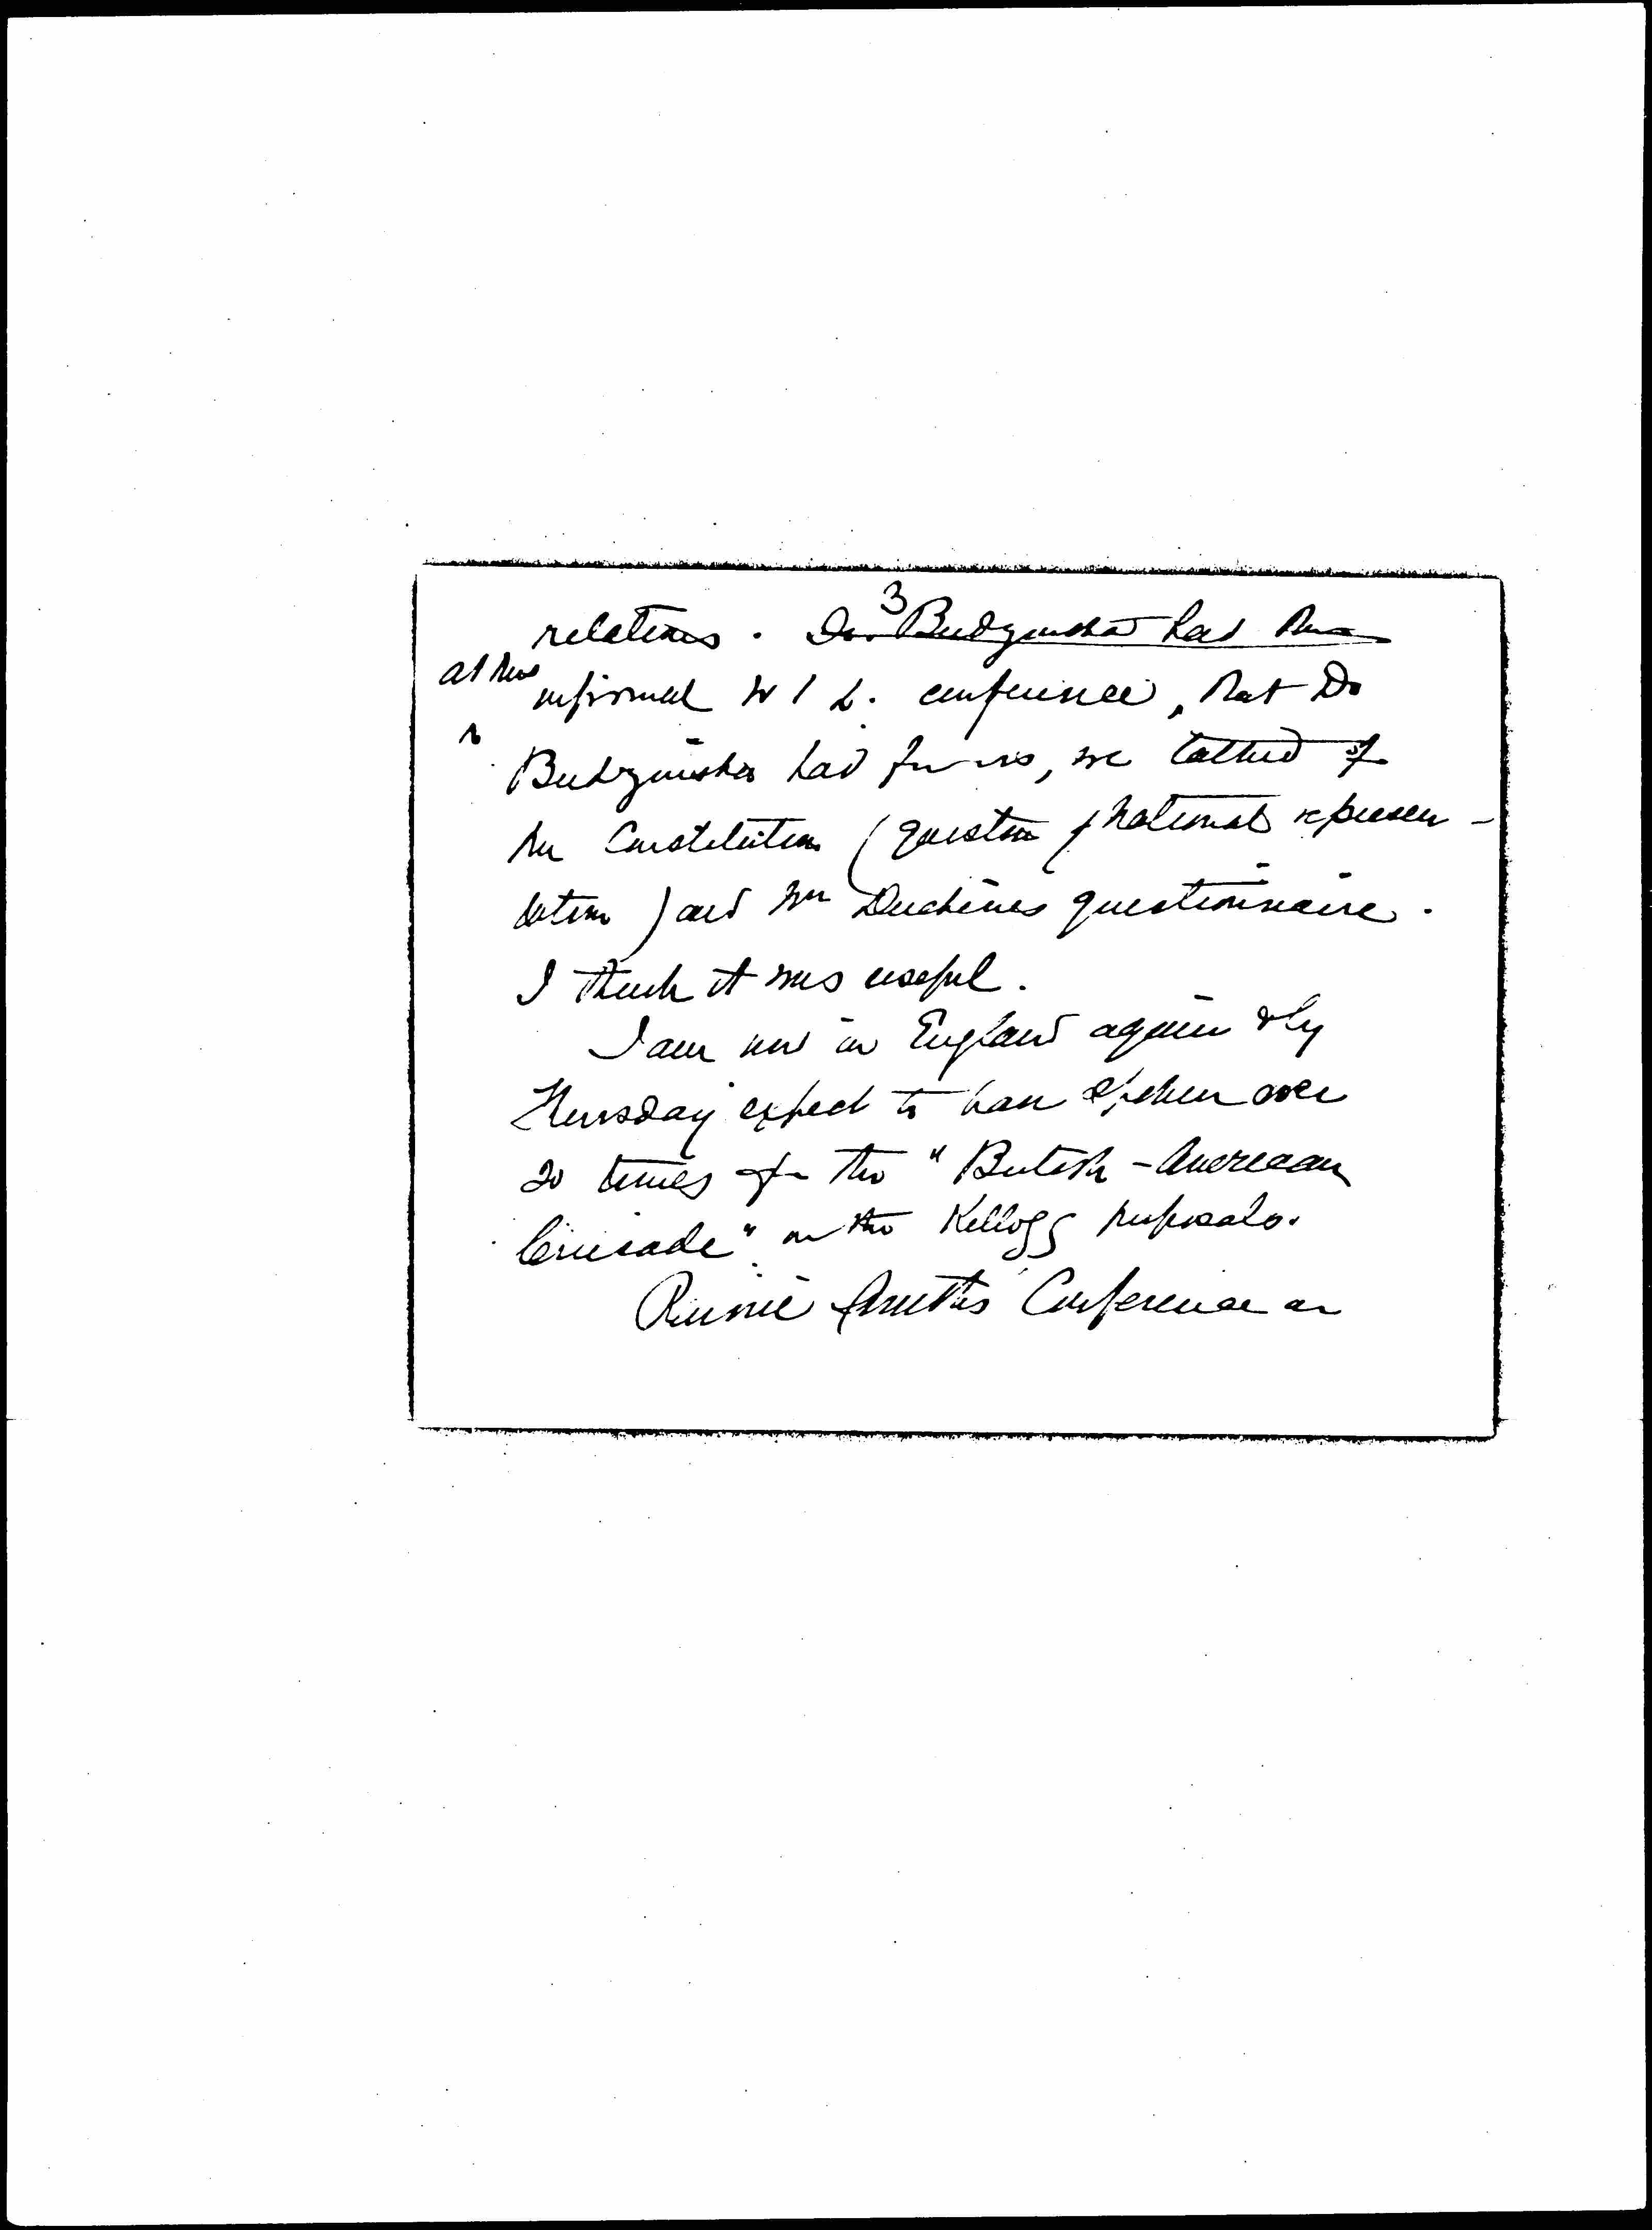 3
relations. Dr. Budzinska had the
at the informal W I L. conference, that Dr
Budzinska had for us, we talked of
the Constitution (question of national represen-
tation) and Mme Duchênes questionnaire.
I think it was useful.
I am now in England again & by
Thursday expect to have spoken over
20 times for the "British-American
Crusade" on the Kellogg proposals.
Rennie Smith's Conference on